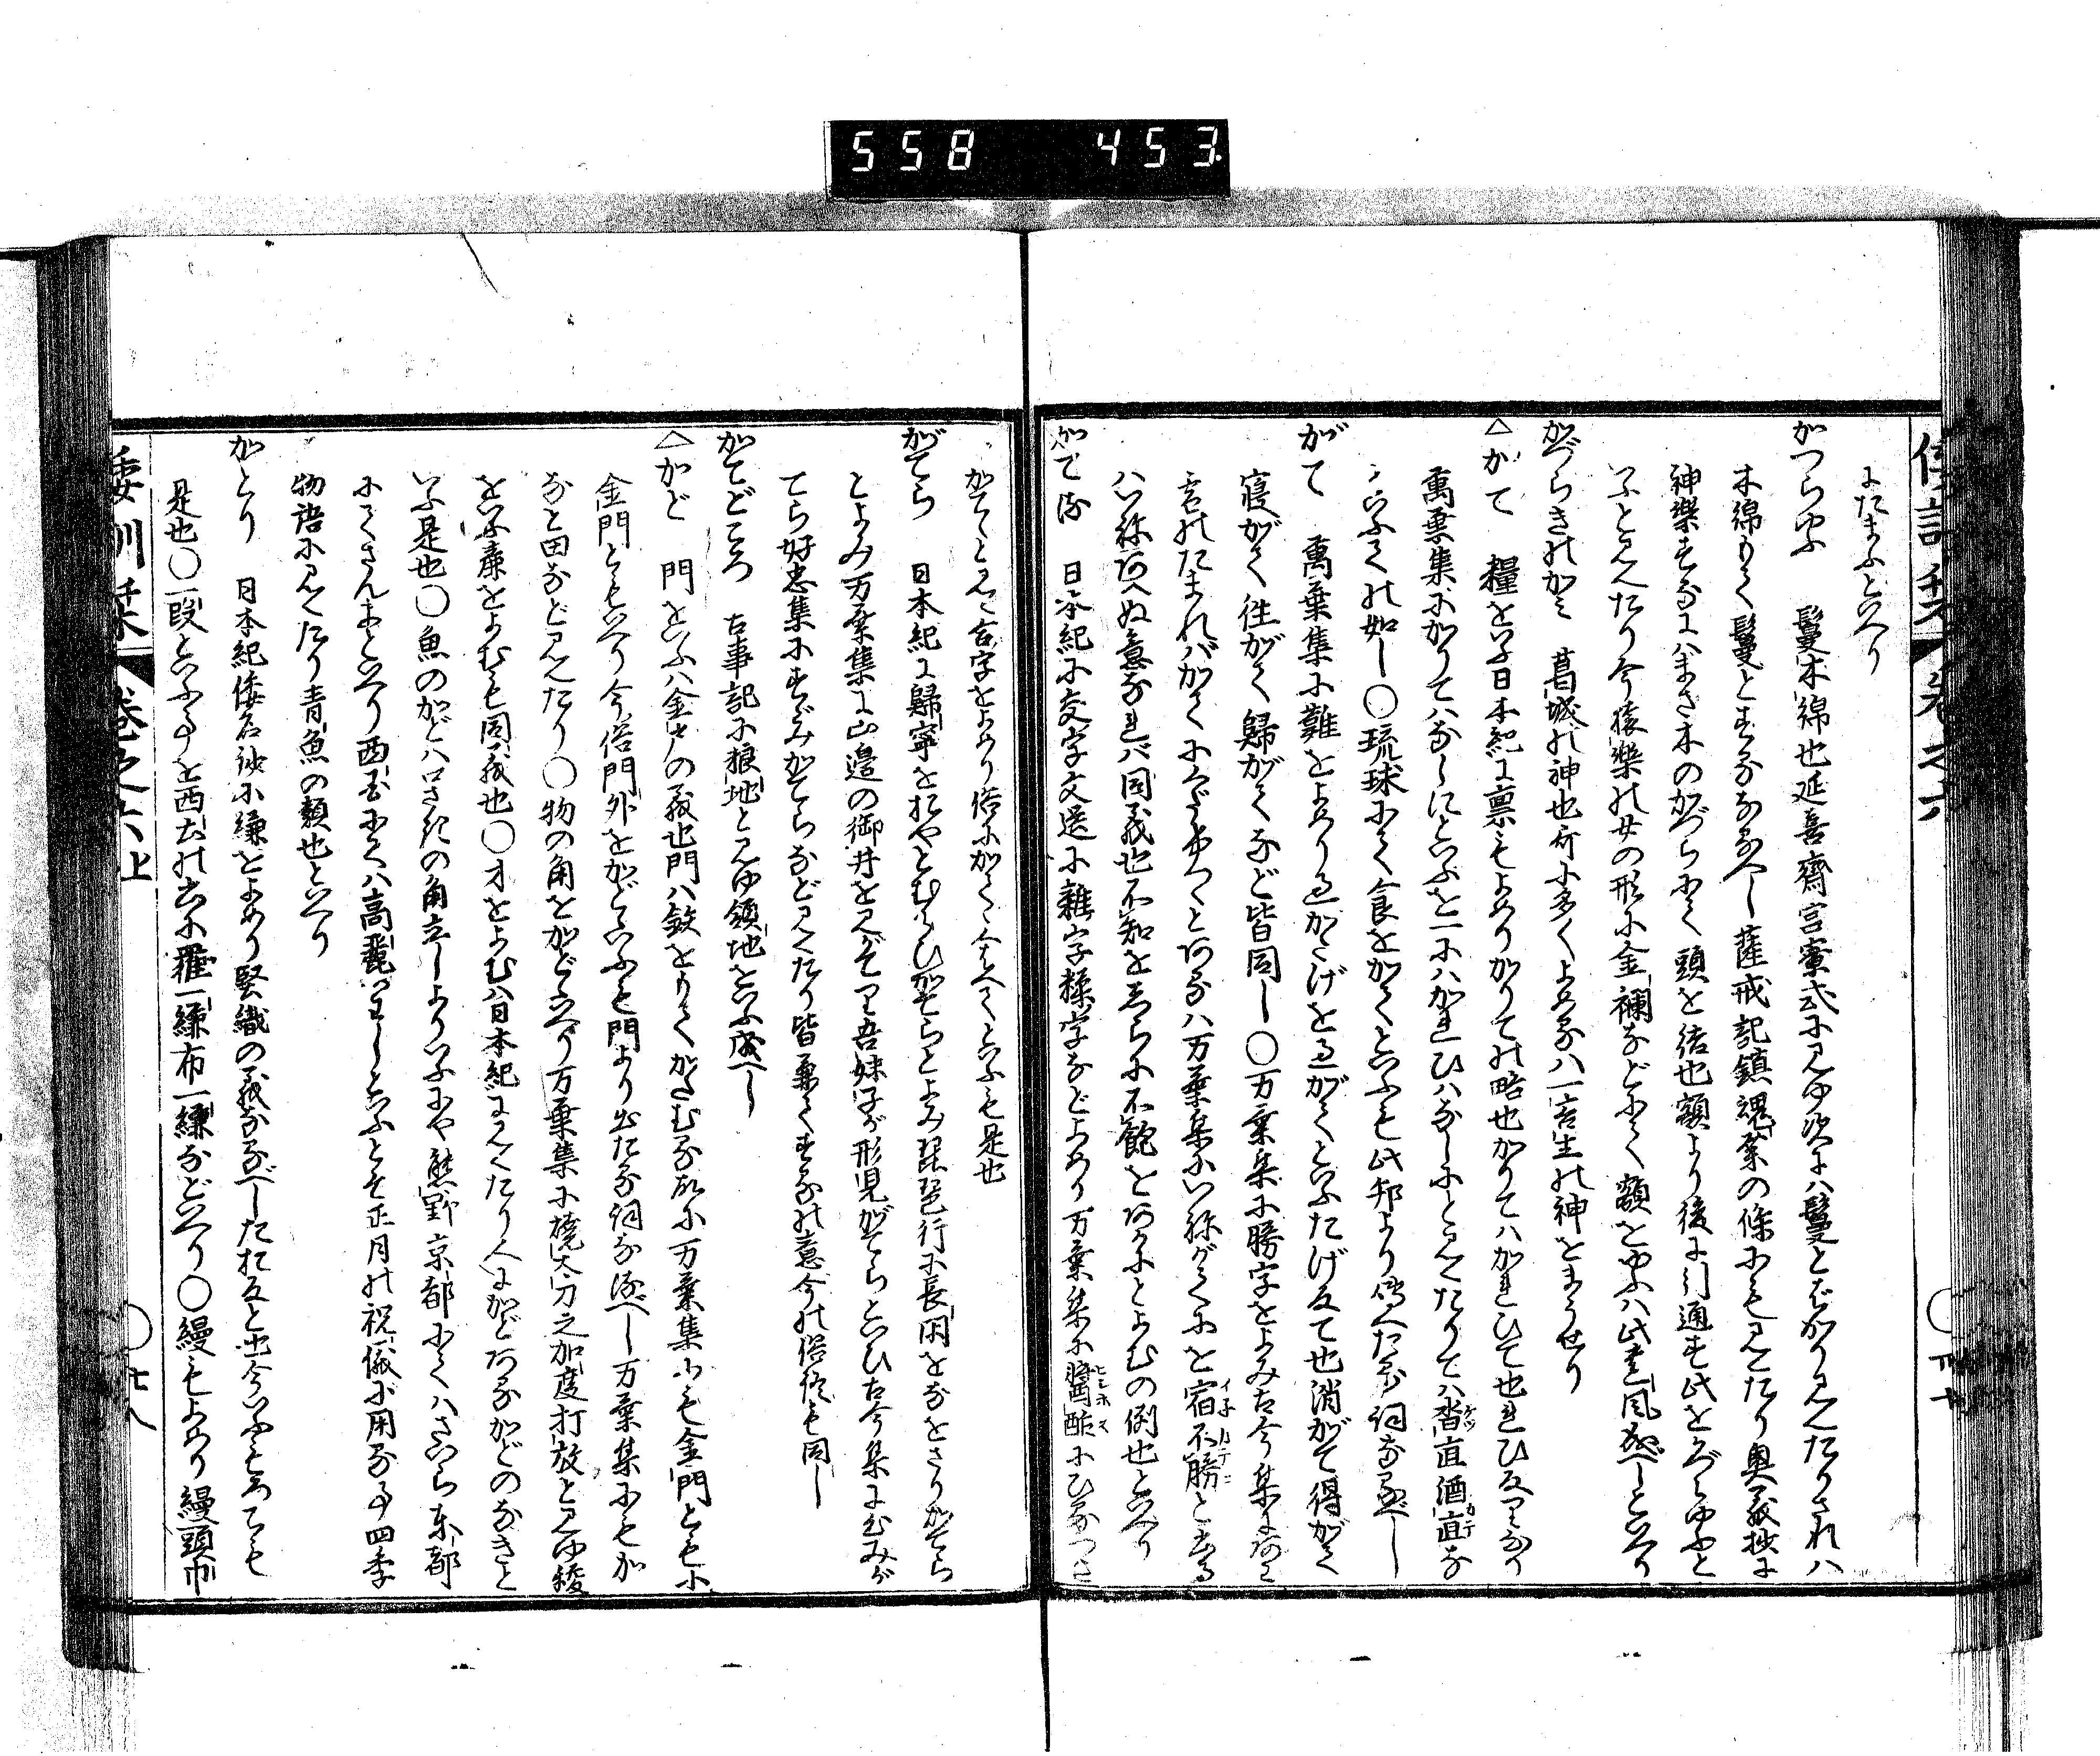 558 453
にたまふといへり
かつらゆふ 鬘木綿也延喜齋宮寮式に見ゆ次には鬘とばかり見えたりされは
木綿もて鬘とするなるへし薩戒記鎮魂祭の條にも見えたり奥義抄に
神樂するにはまさ木のかづらにて頭を結也額より後に引通す此をかづらゆふと
いふと見えたり今猿樂の女の形に金襴などにて額をゆふは此遺風成べしといへり
かづらきのかみ 葛城の神也哥に多くよめるは一言主の神をまうせり
△かて 糧をいふ日本紀に禀もよめりかりての略也かりてはかれひて也れひ反りなり
萬葉集にかりてはなしにといふを一にはかれひはなしにと見えたりては沓直酒直な
といふての如し〇琉球にて食をかてといふも此邦より傳へたる詞なるべし
がて 萬葉集に難をよめり過がてげを過がてといふたげ反て也消がて得がて
寝がて往がて歸がてなど皆同し〇万葉集に勝字をよみ古今集にあは
雪のたまればがてにくだけつゝとあるは万葉集にいねがてにを宿不勝と書る
はいねあへぬ意なれば同義也不知をしらに不飽をあかにとよむの例也といへり
かてる 日本紀に交字文選に雜字糅字などよめり万葉集に醤酢にひるつき
かてゝと見ゆ合字をよめり俗にかてゝくはへてといふも是也
がてら 日本紀に歸寧をおやとむらひがてらとよみ琵琶行に長閑をなをさりがてら
とよみ万葉集に山邉の御井を見がてり吾妹子が形見がてらといひ古今集にむみが
てら好忠集にすゞみがてらなど見えたり皆兼てするの意今の俗徒も同し
かてどころ 古事記に粮地と見ゆ領地をいふ成へし
△かど 門をいふは金戸の義也門は鉄をもてかさむる故に万葉集にも金門とも小
金門ともいへり今俗門外をかどといふも門より出たる詞なるへし万葉集にもか
なと田など見えたり〇物の角をかどといへり万葉集に燒大刀之加度打放と見ゆ稜
をいふ廉をよむも同義也〇才をよむは日本紀に見えたり人にかどあるかどのなきと
いふ是也〇魚のかどは口さきの角立しよりいふにや熊野京都にてはさいら東都
にてさんまといへり西国にては高麗いわしといふとそ正月の祝儀に用る事四季
物語に見えたり青魚の類也といへり
かとり 日本紀倭名鈔に縑をよめり堅織の義なるべしたお反と也今いふもろこしも
是也〇一段といふ事を西土の書に羅一縑布一縑などいへり〇縵もよめり縵頭巾
倭訓栞 巻之六上